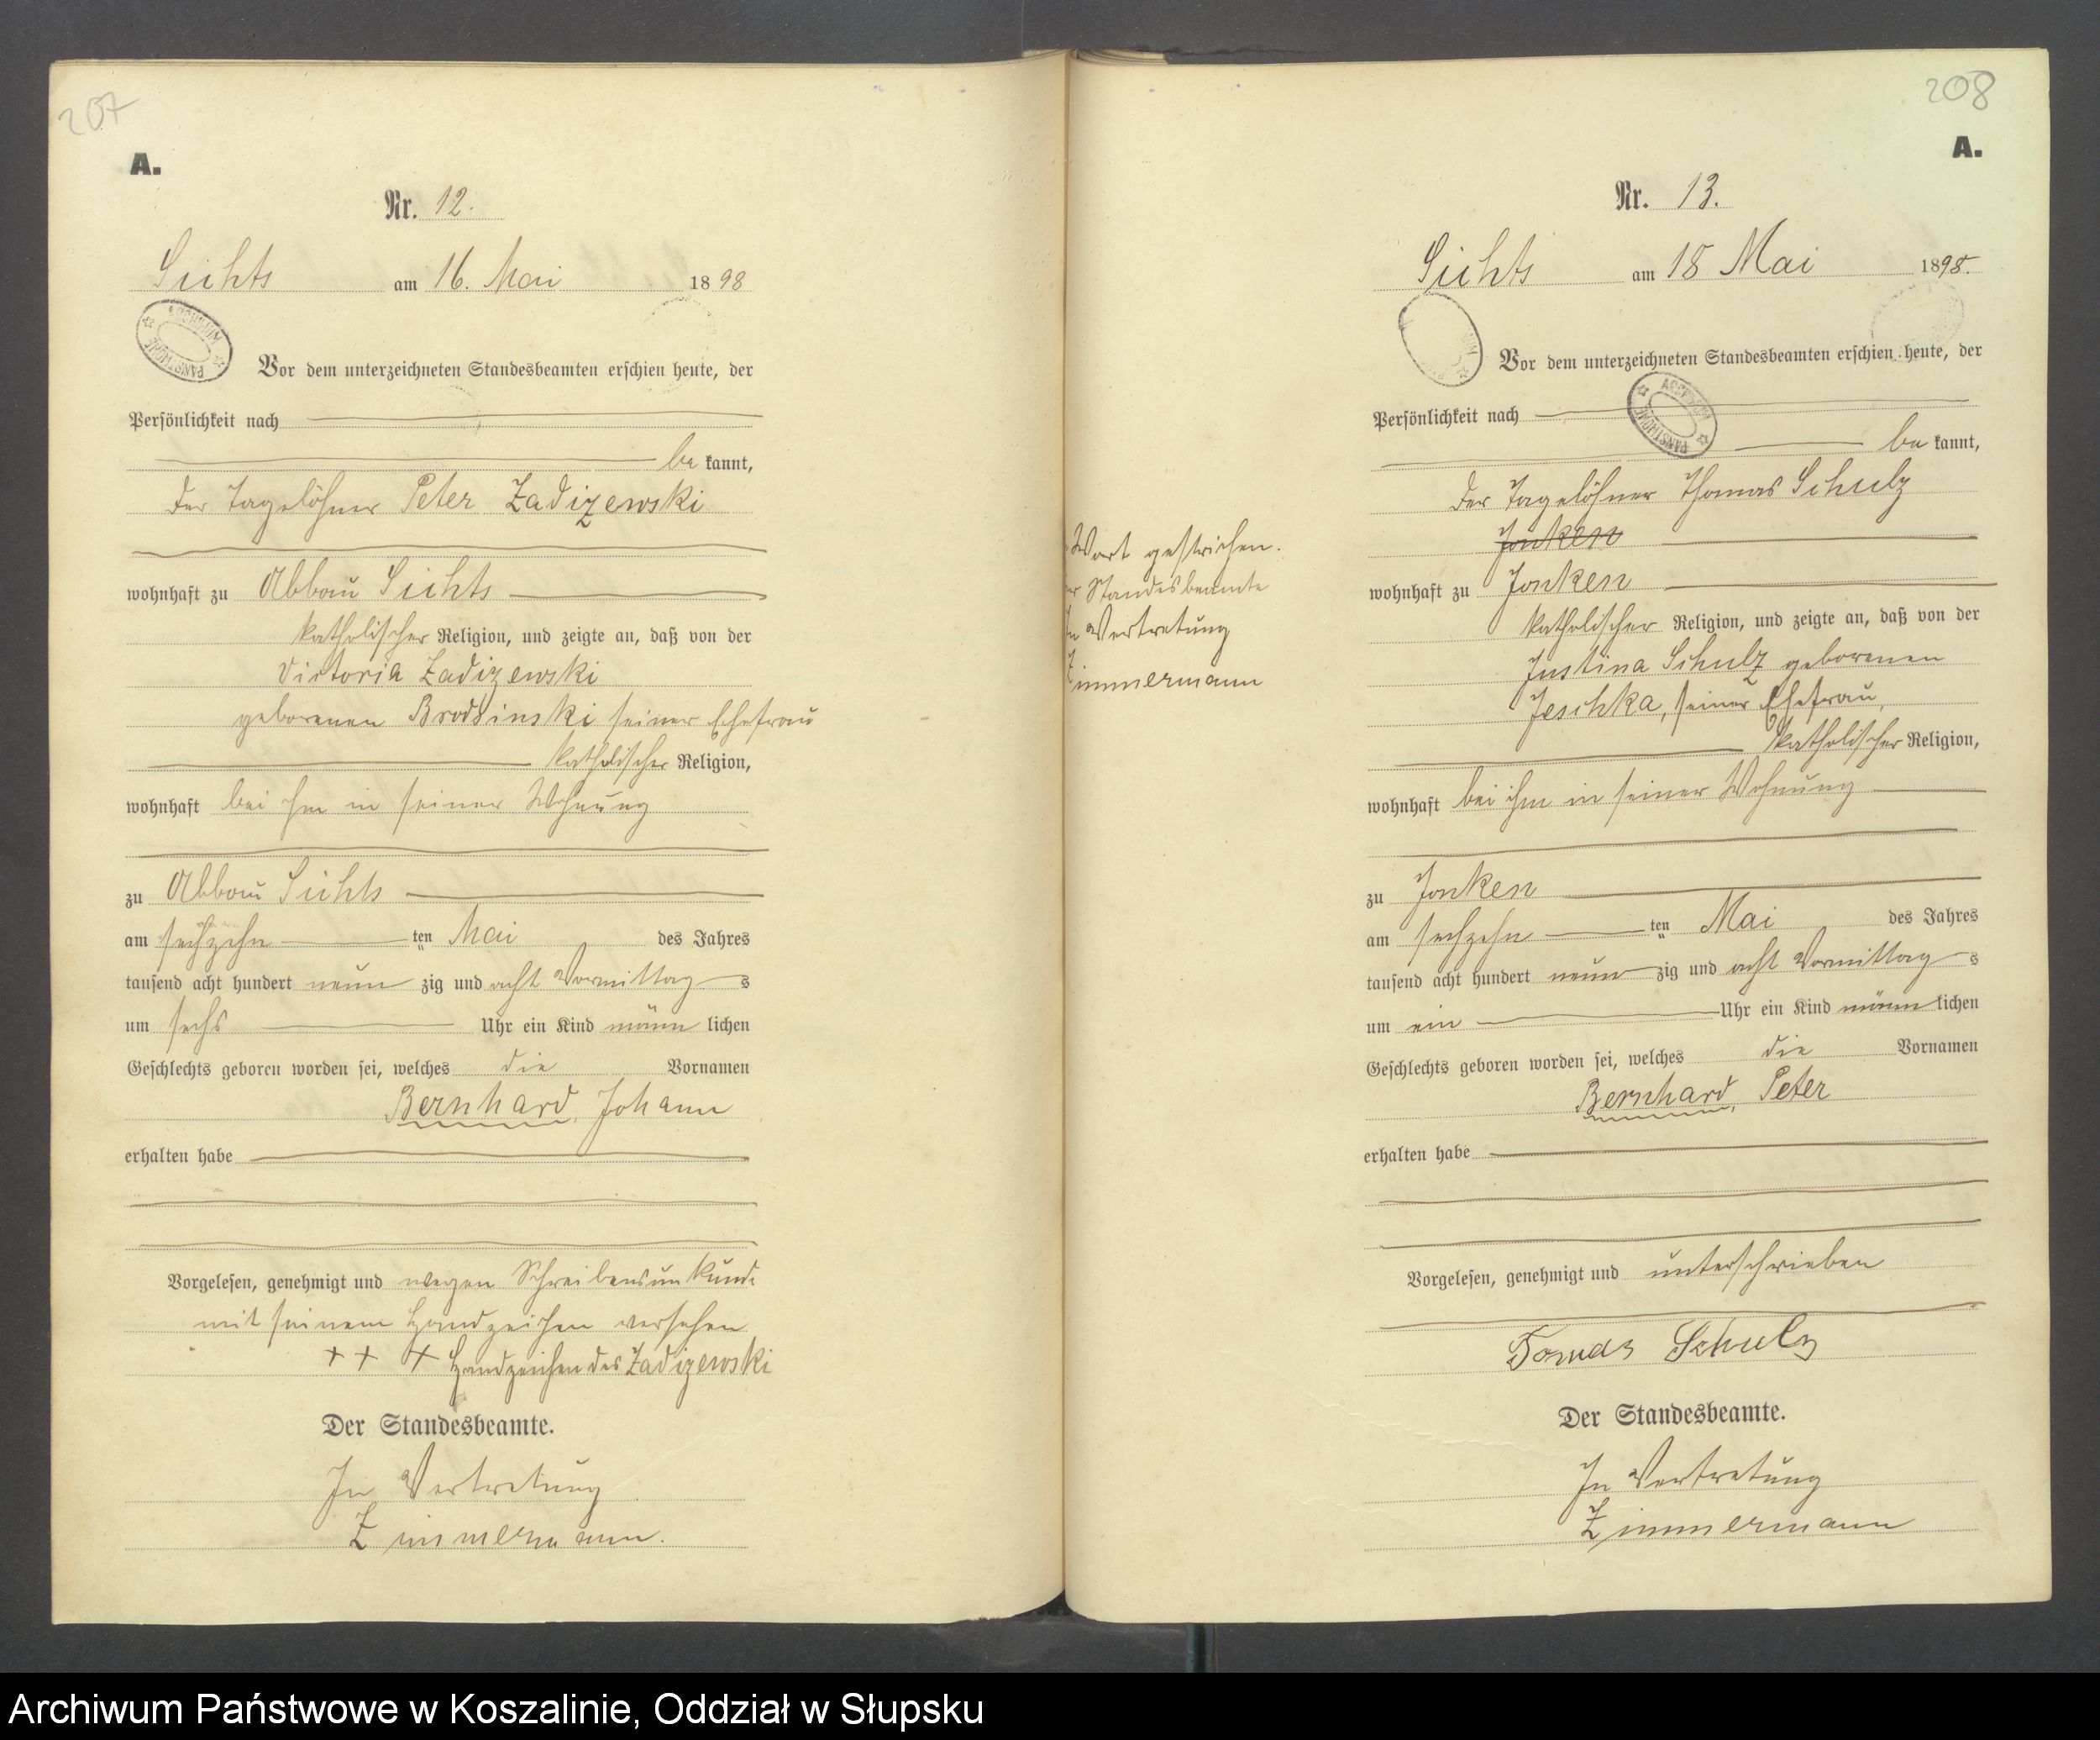 207
A.
Nr. 12.
Sichts am 16. Mai 1898
Vor dem unterzeichneten Standesbeamten erschien heute, der
Persönlichkeit nach
be kannt,
der Tagelöhner Peter Zadizewski
wohnhaft zu Abbau Sichts
katholischer Religion, und zeigte an, daß von der
Victoria Zadizewski
geborenen Brodsinski seiner Ehefrau
katholischer Religion,
wohnhaft bei ihm in seiner Wohnung
zu Abbau Sichts
am sechzehn ten Mai des Jahres
tausend acht hundert neun zig und acht Vormittag s
um sechs Uhr ein Kind männ lichen
Geschlechts geboren worden sei, welches die Vornamen
Bernhard, Johann
erhalten habe
Vorgelesen, genehmigt und wegen Schreibensunkunde
mit seinem Handzeichen versehen
+ + + Handzeichen des Zadizewski
Der Standesbeamte.
In Vertretung
Zimmermann.
Wort gestrichen.
Standesbeamte
In Vertretung
Zimmermann
208
A.
Nr. 13.
Sichts am 18 Mai 1898.
Vor dem unterzeichneten Standesbeamten erschien heute, der
Persönlichkeit nach
be kannt,
der Tagelöhner Thomas Schulz
Jonken
wohnhaft zu Jonken
katholischer Religion, und zeigte an, daß von der
Justina Schulz geborenen
Jeschka, seiner Ehefrau,
katholischer Religion,
wohnhaft bei ihm in seiner Wohnung
zu Jonken
am sechzehn ten Mai des Jahres
tausend acht hundert neun zig und acht Vormittag s
um ein Uhr ein Kind männ lichen
Geschlechts geboren worden sei, welches die Vornamen
Bernhard, Peter
erhalten habe
Vorgelesen, genehmigt und unterschrieben
Tomas Schulz
Der Standesbeamte.
In Vertretung
Zimmermann
Archiwum Państwowe w Koszalinie, Oddział w Słupsku